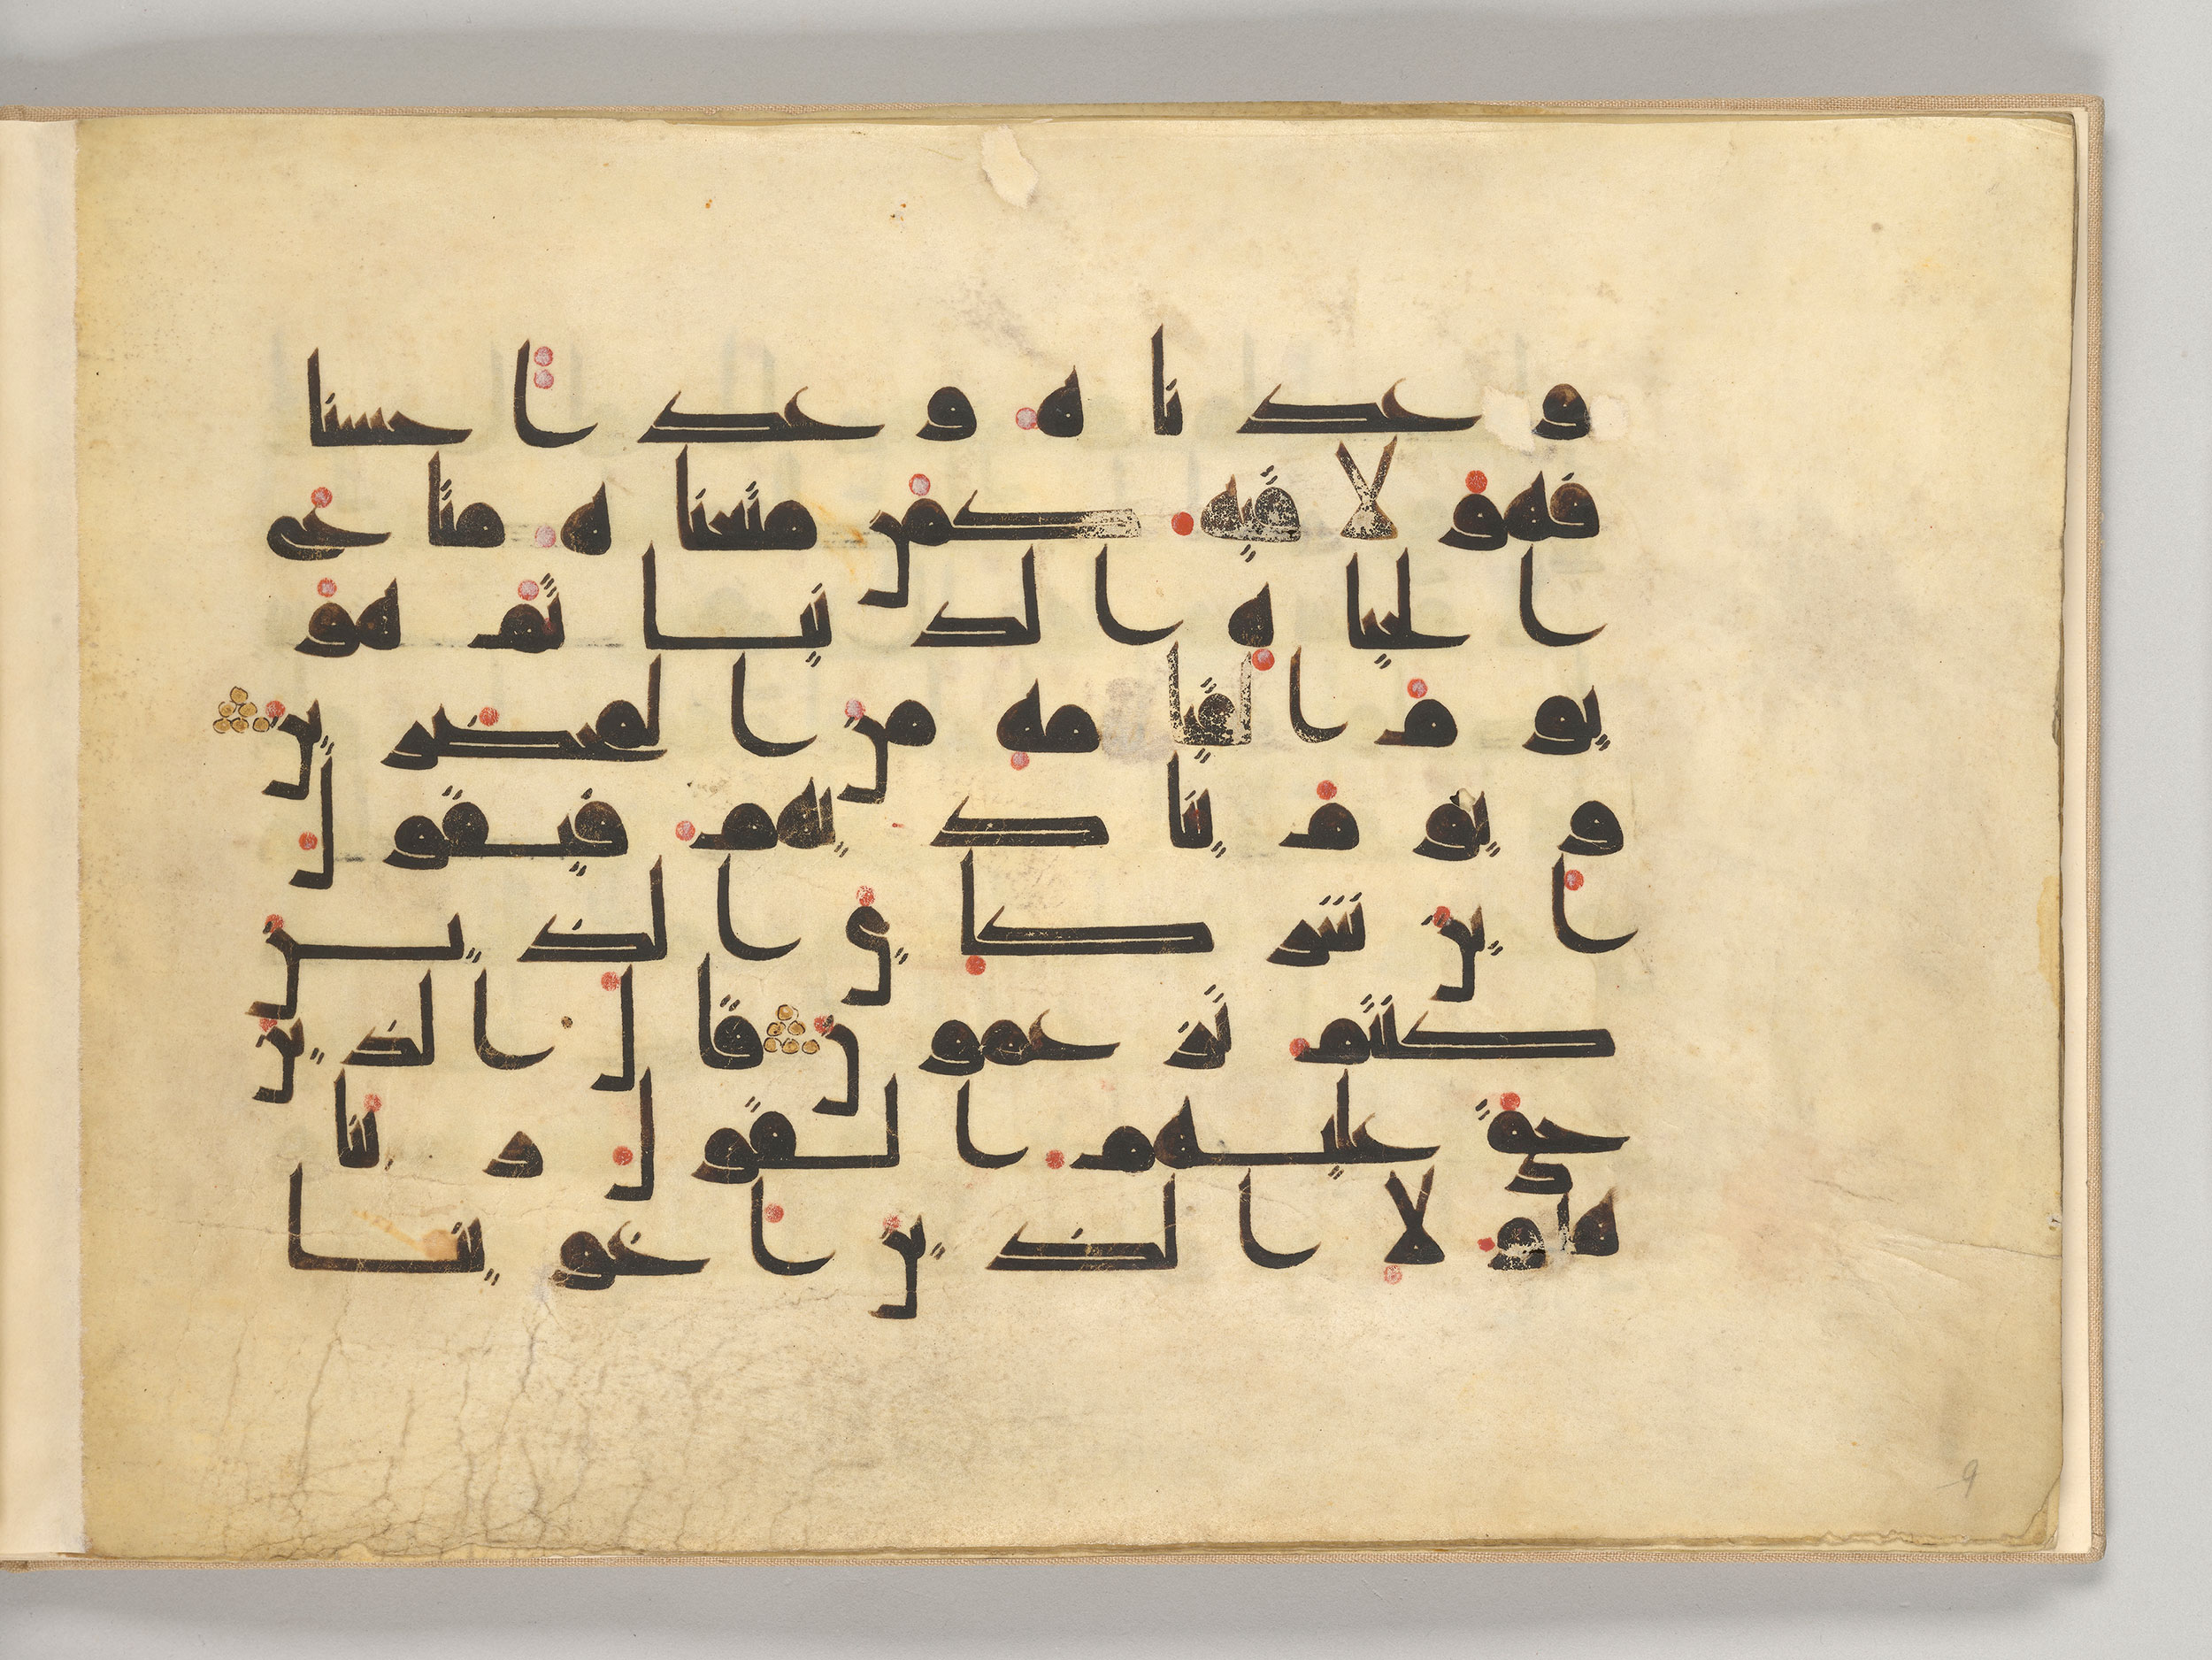 وعدناه وعدا حسنا
فهو لاقيه كمن متعناه متاع
الحياه الدنيا ثم هو
يوم القيامه من المحضرين
ويوم يناديهم فيقول
اين شركاي الذين
كنتم تزعمون قال الذين
حق عليهم القول ربنا
هاولا الذين اغوينا
9